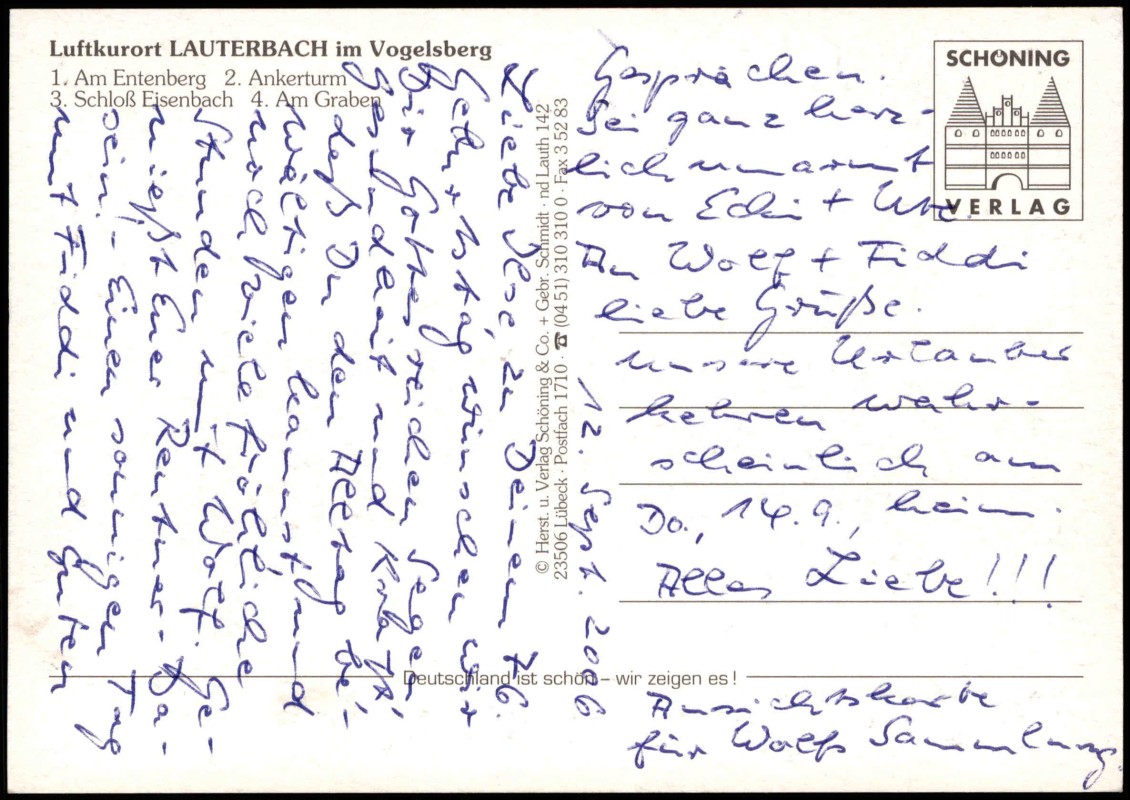 Luftkurort LAUTERBACH im Vogelsberg
1. Am Entenberg 2. Ankerturm
3. Schloß Eisenbach 4. Am Graben
12. Sept. 2006
Liebe Ilse, zu Deinem 76.
Geburtstag wünschen wir
Dir Gottes reichen Segen,
Gesundheit und Kraft,
daß Du den Alltag be-
wältigen kannst und
noch viele fröhliche
Stunden mit Wolf. Ge-
nießt Euer Rentner-Da-
sein! - Einen sonnigen Tag
mit Fiddi und guten
Gesprächen.
Sei ganz herz-
lich umarmt
von Edin + Ute.
An Wolf + Fiddi
liebe Grüße.
Unsere Urlauber
kehren wahr-
scheinlich am
Do., 14.9., heim.
Alles Liebe!!!
Ansichtskarte
für Wolfs Sammlung.
© Herst. u. Verlag Schöning & Co. + Gebr. Schmidt · nd Lauth 142
23506 Lübeck · Postfach 1710 · ☎ (04 51) 310 310 0 · Fax 3 52 83
SCHÖNING
VERLAG
Deutschland ist schön – wir zeigen es!